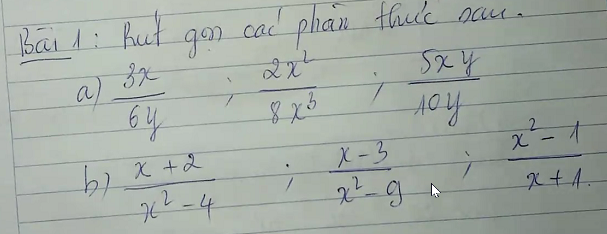 Bài 1: Rút gọn các phân thức sau.
a) 3x/6y ; 2x²/8x³ ; 5xy/10y
b) x + 2/x² - 4 ; x - 3/x² - 9 ; x² - 1/x + 1.